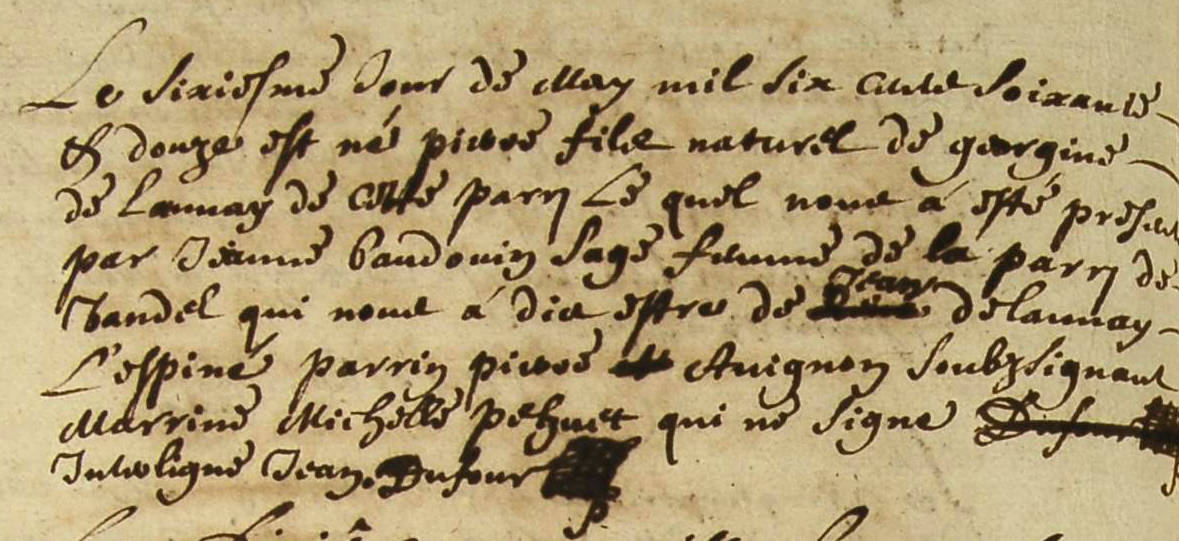 Le sixiesme Jour de May mil six cents soixante
& douze est né pierre fils naturel de georgine
de Launay de cette parr Le quel nous à esté presenté
par Jeanne baudouin sage femme de la parr de
Vandel qui nous à dict estre de Jean delaunay
L'espiné parrin pierre Avignon soubzsignant
Marrine Michelle pehuet qui ne signe Dufour
Interligne Jean Dufour